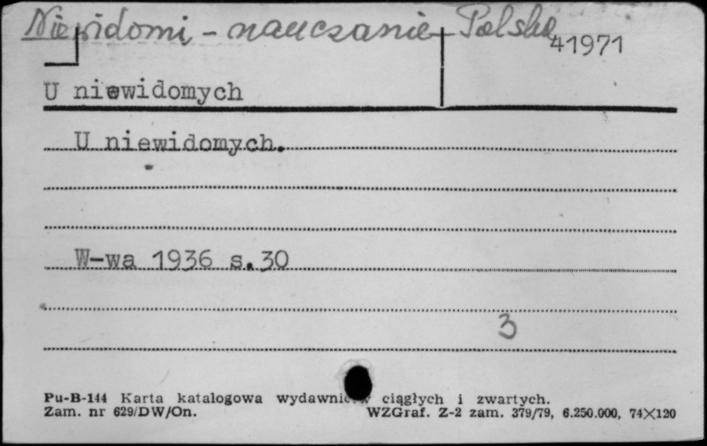 Niewidomi - nauczanie - Polska
41971
U niewidomych
U niewidomych.
W-wa 1936 s.30
3
Pu-B-144 Karta katalogowa wydawnictw ciągłych i zwartych.
Zam. nr 629/DW/On. WZGraf. Z-2 zam. 379/79, 6.250.000, 74×120